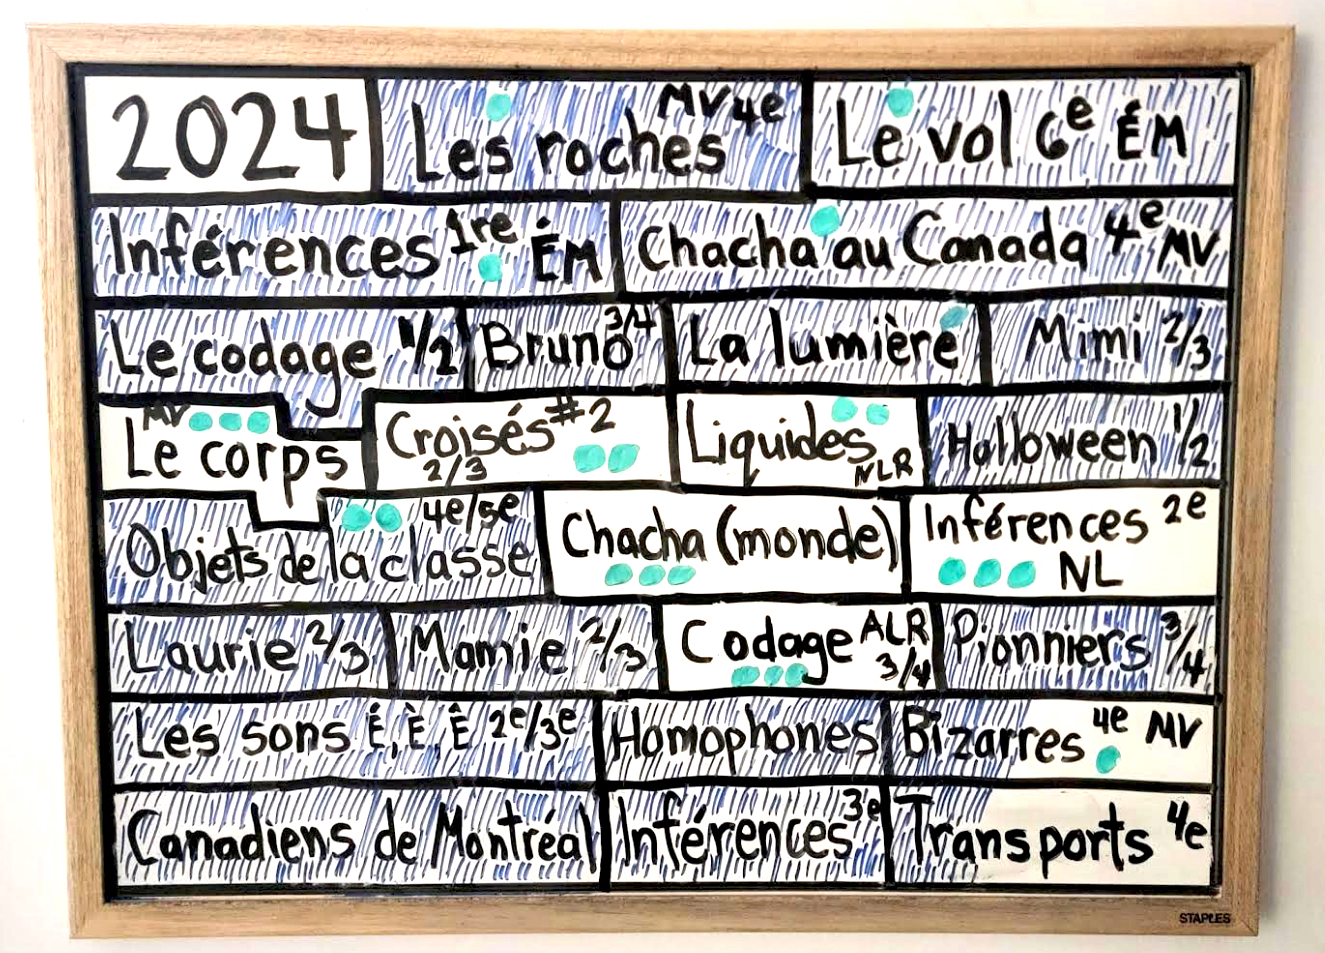 2024
Les roches MV 4e
Le vol 6e ÉM
Inférences 1re ÉM
Chacha au Canada 4e MV
Le codage 1/2
Bruno 3/4
La lumière
Mimi 2/3
MV
Le corps
Croisés #2
2/3
Liquides
NLR
Halloween 1/2
Objets de la classe 4e/5e
Chacha (monde)
Inférences 2e
NL
Laurie 2/3
Mamie 2/3
Codage ALR
3/4
Pionniers 3/4
Les sons É, È, Ê 2e/3e
Homophones
Bizarres 4e MV
Canadiens de Montréal
Inférences 3e
Transports 4e
STAPLES